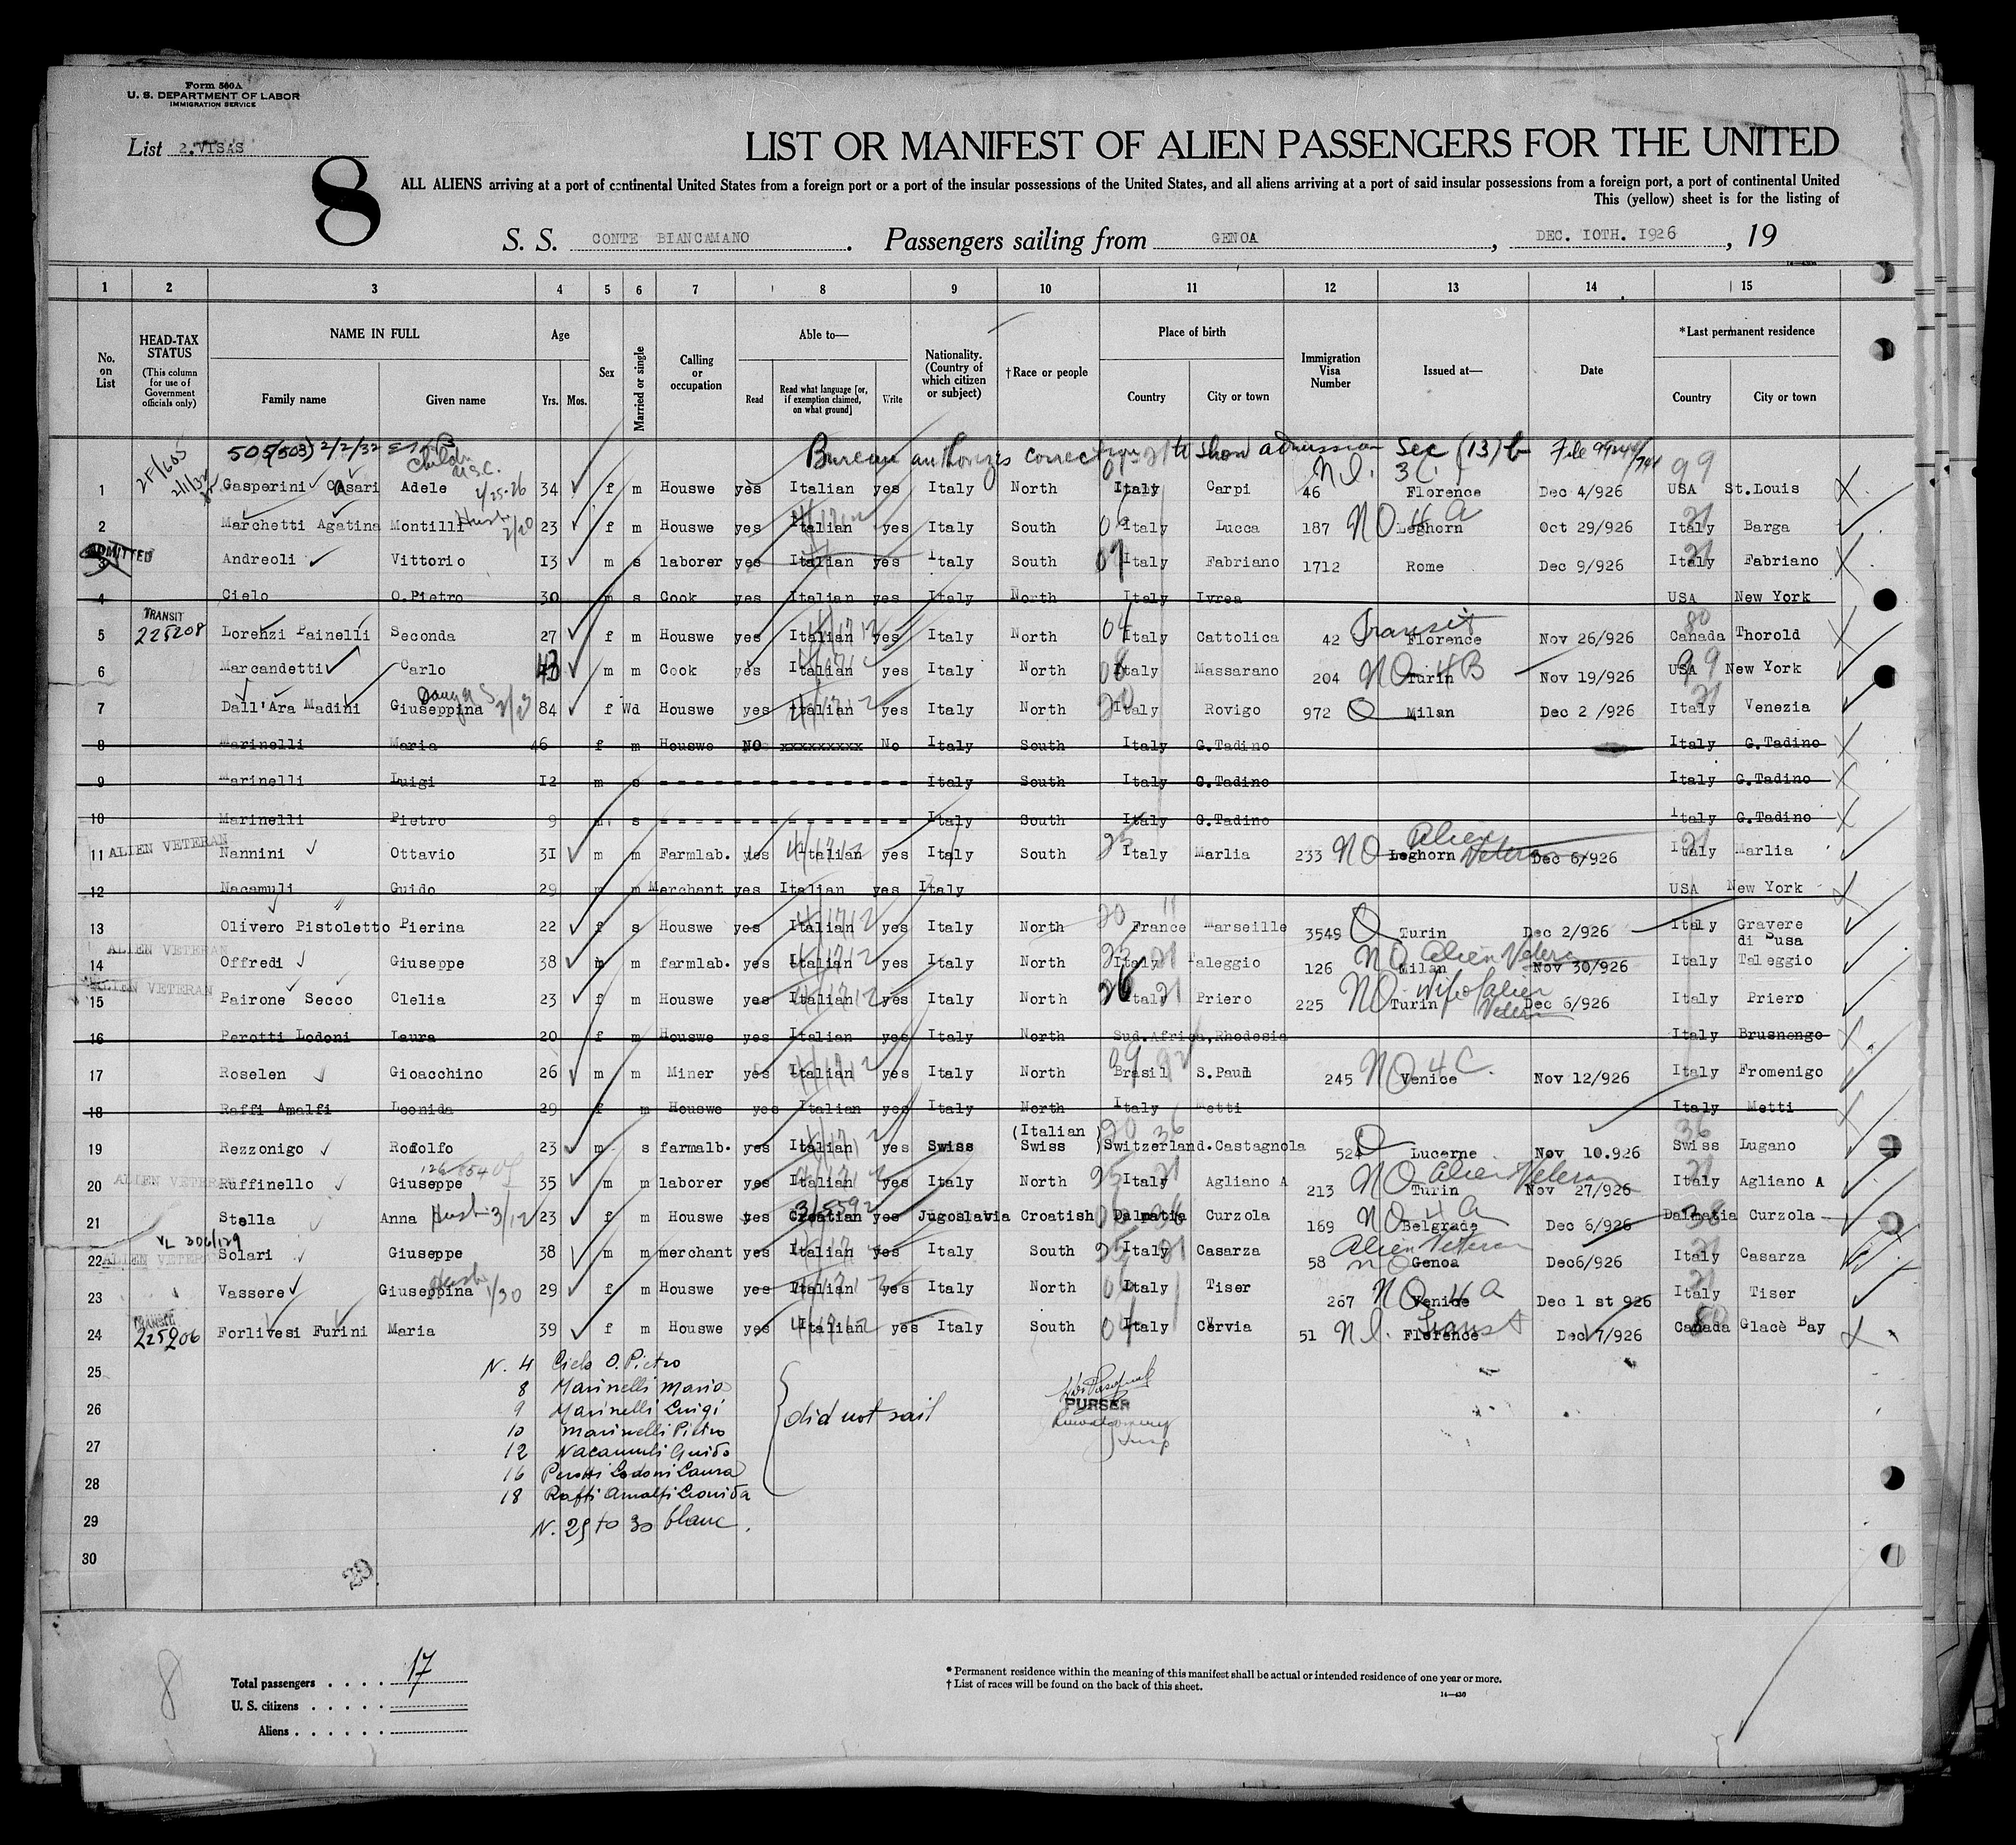 Form 500A
U. S. DEPARTMENT OF LABOR
IMMIGRATION SERVICE
List 2.VISAS
8
LIST OR MANIFEST OF ALIEN PASSENGERS FOR THE UNITED
ALL ALIENS arriving at a port of continental United States from a foreign port or a port of the insular possessions of the United States, and all aliens arriving at a port of said insular possessions from a foreign port, a port of continental United
This (yellow) sheet is for the listing of
S. S. CONTE BIANCAMANO. Passengers sailing from GENOA, DEC. IOTH. I926, 19
1 2 3 4 5 6 7 8 9 10 11 12 13 14 15
No. on List
HEAD-TAX STATUS (This column for use of Government officials only)
NAME IN FULL
Family name Given name
Age
Yrs. Mos.
Sex
Married or single
Calling or occupation
Able to—
Read Read what language [or, if exemption claimed, on what ground] Write
Nationality. (Country of which citizen or subject)
†Race or people
Place of birth
Country City or town
Immigration Visa Number
Issued at—
Date
*Last permanent residence
Country City or town
505(503) 2/2/32 Bureau authorizes correction to show admission Sec (13) b File
1 Gasperini Casari Adele 4/25-26 34 f m Houswe yes Italian yes Italy North Italy Carpi 46 Florence Dec 4/926 USA St.Louis
2 Marchetti Agatina Montilli 23 f m Houswe yes Italian yes Italy South Italy Lucca 187 NO 4 a Leghorn Oct 29/926 Italy Barga
ADMITTED
3 Andreoli Vittorio I3 m s laborer yes Italian yes Italy South 07 Italy Fabriano 1712 Rome Dec 9/926 Italy Fabriano
4 Cielo O.Pietro 30 m s Cook yes Italian yes Italy North Italy Ivrea USA New York
TRANSIT
5 225208 Lorenzi Painelli Seconda 27 f m Houswe yes Italian yes Italy North 04 Italy Cattolica 42 Transit Florence Nov 26/926 80 Canada Thorold
6 Marcandetti Carlo 43 m m Cook yes Italian yes Italy North Italy Massarano 204 NO 4 B Turin Nov 19/926 99 USA New York
7 Dall'Ara Madini Giuseppina 84 f Wd Houswe yes Italian yes Italy North 20 Italy Rovigo 972 Milan Dec 2 /926 21 Italy Venezia
8 Marinelli Maria 46 f m Houswe NO xxxxxxxxx No Italy South Italy G.Tadino Italy G.Tadino
9 Marinelli Luigi I2 m s Italy South Italy G.Tadino Italy G.Tadino
10 Marinelli Pietro 9 m s Italy South Italy G.Tadino Italy G.Tadino
ALIEN VETERAN
11 Nannini Ottavio 3I m m Farmlab. yes Italian yes Italy South Italy Marlia 233 NO Leghorn Alien Veteran Dec 6/926 Italy Marlia
12 Nacamuli Guido 29 m m Merchant yes Italian yes Italy USA New York
13 Olivero Pistoletto Pierina 22 f s Houswe yes Italian yes Italy North 20 France Marseille 3549 Turin Dec 2/926 Italy Gravere di Susa
ALIEN VETERAN
14 Offredi Giuseppe 38 m m farmlab. yes Italian yes Italy North Italy Taleggio 126 NO Milan Alien Veteran Nov 30/926 Italy Taleggio
ALIEN VETERAN
15 Pairone Secco Clelia 23 f m Houswe yes Italian yes Italy North 26 Italy 21 Priero 225 NO Turin Wife of alien Veteran Dec 6/926 Italy Priero
16 Perotti Lodoni Laura 20 f m Houswe yes Italian yes Italy North Sud.Africa,Rhodesia Italy Brusnengo
17 Roselen Gioacchino 26 m m Miner yes Italian yes Italy North Brasil S.Paul 245 NO 4 C. Venice Nov 12/926 Italy Fromenigo
18 Raffi Amalfi Leonida 29 f m Houswe yes Italian yes Italy North Italy Metti Italy Metti
19 Rezzonigo Rodolfo 23 m s farmalb. yes Italian yes Swiss (Italian Swiss) Switzerland.Castagnola 524 Lucerne Nov 10.926 36 Swiss Lugano
ALIEN VETERAN
20 Ruffinello Giuseppe 35 m m laborer yes Italian yes Italy North 25 Italy 21 Agliano A 213 NO Turin Alien Veteran Nov 27/926 21 Italy Agliano A
21 Stella Anna Husb 3/12 23 f m Houswe yes Croatian yes Jugoslavia Croatish Dalmatia Curzola 169 NO 4 a Belgrade Dec 6/926 38 Dalmatia Curzola
VL 306/129
ALIEN VETERAN
22 Solari Giuseppe 38 m m merchant yes Italian yes Italy South 25 Italy Casarza 58 Alien Veteran NO Genoa Dec6/926 21 Italy Casarza
23 Vassere Giuseppina Husb 1/30 29 f m Houswe yes Italian yes Italy North Italy Tiser 267 NO 4 a Venice Dec 1 st 926 21 Italy Tiser
TRANSIT
24 225206 Forlivesi Furini Maria 39 f m Houswe yes Italian yes Italy South 04 Italy Cervia 51 Transit Florence Dec 7/926 80 Canada Glacè Bay
25 N. 4 Cielo O. Pietro
8 Marinelli Maria
26 9 Marinelli Luigi did not sail PURSER
10 Marinelli Pietro
27 12 Nacamuli Guido
16 Perotti Lodoni Laura
28 18 Raffi Amalfi Leonida
29 N. 25 to 30 blanc.
30
8
Total passengers . . . . 17
U. S. citizens . . . . .
Aliens . . . . . .
* Permanent residence within the meaning of this manifest shall be actual or intended residence of one year or more.
† List of races will be found on the back of this sheet.
14—430